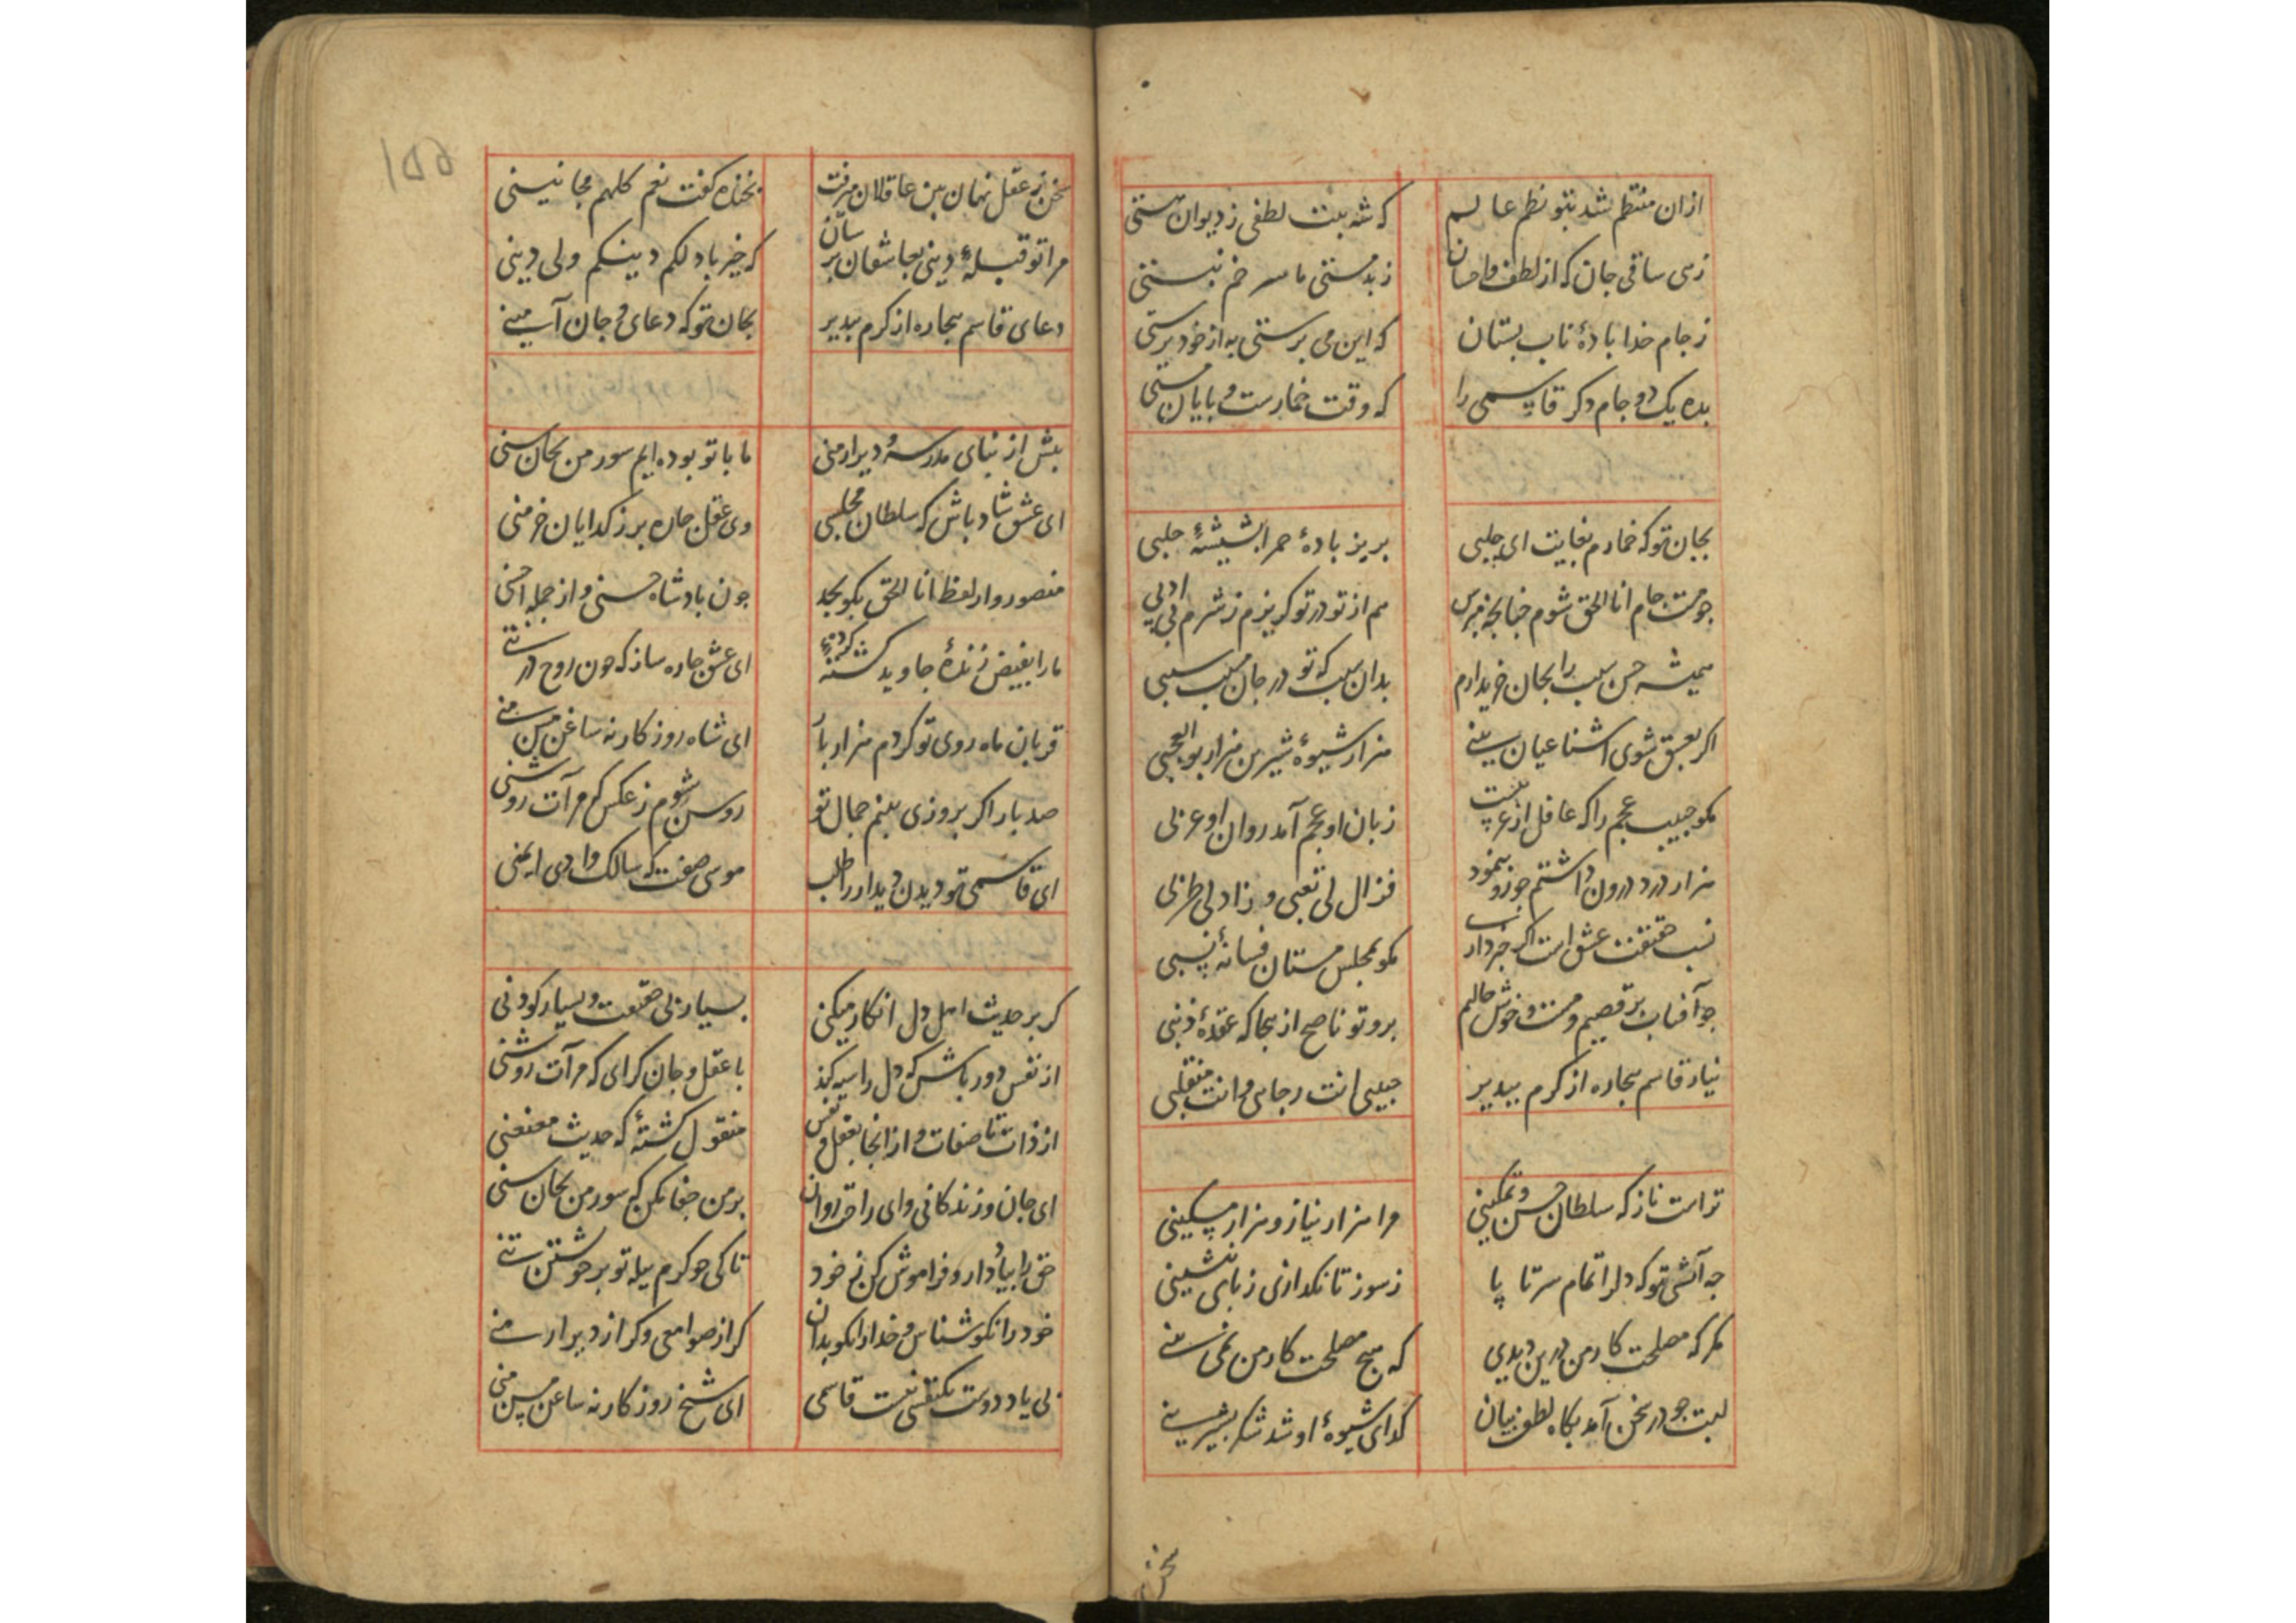 ازان منتظم شد بتو نظم عالم
که شه بیت لطفی ز دیوان هستی
زهی ساقی جان که از لطف و احسان
ز بدمستی ما سر خم نبستی
ز جام خدا بادهٔ ناب بستان
که این می پرستی به از خودپرستی
بده یک دو جام دکر قاسمی را
که وقت خمارست و پایان مستی
بجان تو که خمارم بغایت ای چلبی
بریز بادهٔ حمرا بشیشهٔ حلبی
چو مست جام انا الحق شوم
هم از تو در تو کریزم ز شرم بی ادبی
همیشه حسن سبب را بجان خریدارم
بدان سبب که تو در جان سبب سببی
اکر بعشق شوی آشنا عیان بینی
هزار شیوهٔ شیرین هزار بوالعجبی
مکو حبیب عجم را که غافل از عربیست
زبان او عجم آمد روان او عربی
هزار درد درون داشتم چو رو بنمود
فزال لی تعبی و زاد لی طربی
نسب حقیقت عشق است اکر خبر داری
مکو بمجلس مستان فسانهٔ نسبی
چو آفتاب برقصیم و مست و خوش حالیم
برو تو ناصح ازینجا که عقدهٔ ذنبی
نیاز قاسم بیچاره از کرم بپذیر
حبیبی انت رجایی و انت منقلبی
تراست ناز که سلطان حسن و تمکینی
مرا هزار نیاز و هزار مسکینی
چه آتشی تو که دلرا تمام سر تا پا
ز سوز تا نکدازی ز پای ننشینی
مکر که مصلحت کار من درین دیدی
که هیچ مصلحت کار من نمی بینی
لبت چو در سخن آمد بکاه لطف بیان
کدای شیوهٔ او شد شکر بشیرینی
سخن ز
156
سخن ز عقل نهان بین عاقلان میرفت
بخنده کفت نعم کلهم مجانینی
مرا تو قبلهٔ دینی بعاشقان برسان
که خیر باد لکم دینکم ولی دینی
دعای قاسم بیچاره از کرم بپذیر
بجان تو که دعای و جان آمینی
پیش از بنای مدرسه و دیر ارمنی
ما با تو بوده ایم سور من بحان سنی
ای عشق شاد باش که سلطان مجلسی
وی عقل جان ببر ز کدایان خرمنی
منصور وار لفظ انا الحق بکو بجد
چون پادشاه حسنی و از جمله احسنی
ما را بفیض زندهٔ جاوید کشتهٔ
ای عشق چاره ساز که چون روح در تنی
قربان ماه روی تو کردم هزار بار
ای شاه روزکار نه ساغن مسن منی
صد بار اکر بروزی بینم جمال تو
روشن شوم ز عکس که مرآت روشنی
ای قاسمی تو دیدن دیدار را طلب
موسی صفت که سالک وادی ایمنی
کر بر حدیث اهل دل انکار میکنی
بسیار بی حقیقت و بسیار کودنی
از نفس دور باش که دل را سیه کند
با عقل و جان کرای که مرآت روشنی
از ذات تا صفات و از آنجا بعقل و نفس
منقول کشتهٔ که حدیث معنعنی
ای جان و زندکانی و ای راحت روان
بر من جفا مکن که سور من بحان سنی
حق را بیاد دار و فراموش کن ز خود
تا کی چو کرم پیله تو بر خویشتن تنی
خود را نکو شناس و خدا را نکو بدان
کر از صوامعی و کر از دیر ارمنی
بی یاد دوست یکنفسی نیست قاسمی
ای شیخ روزکار نه ساغن مسن منی